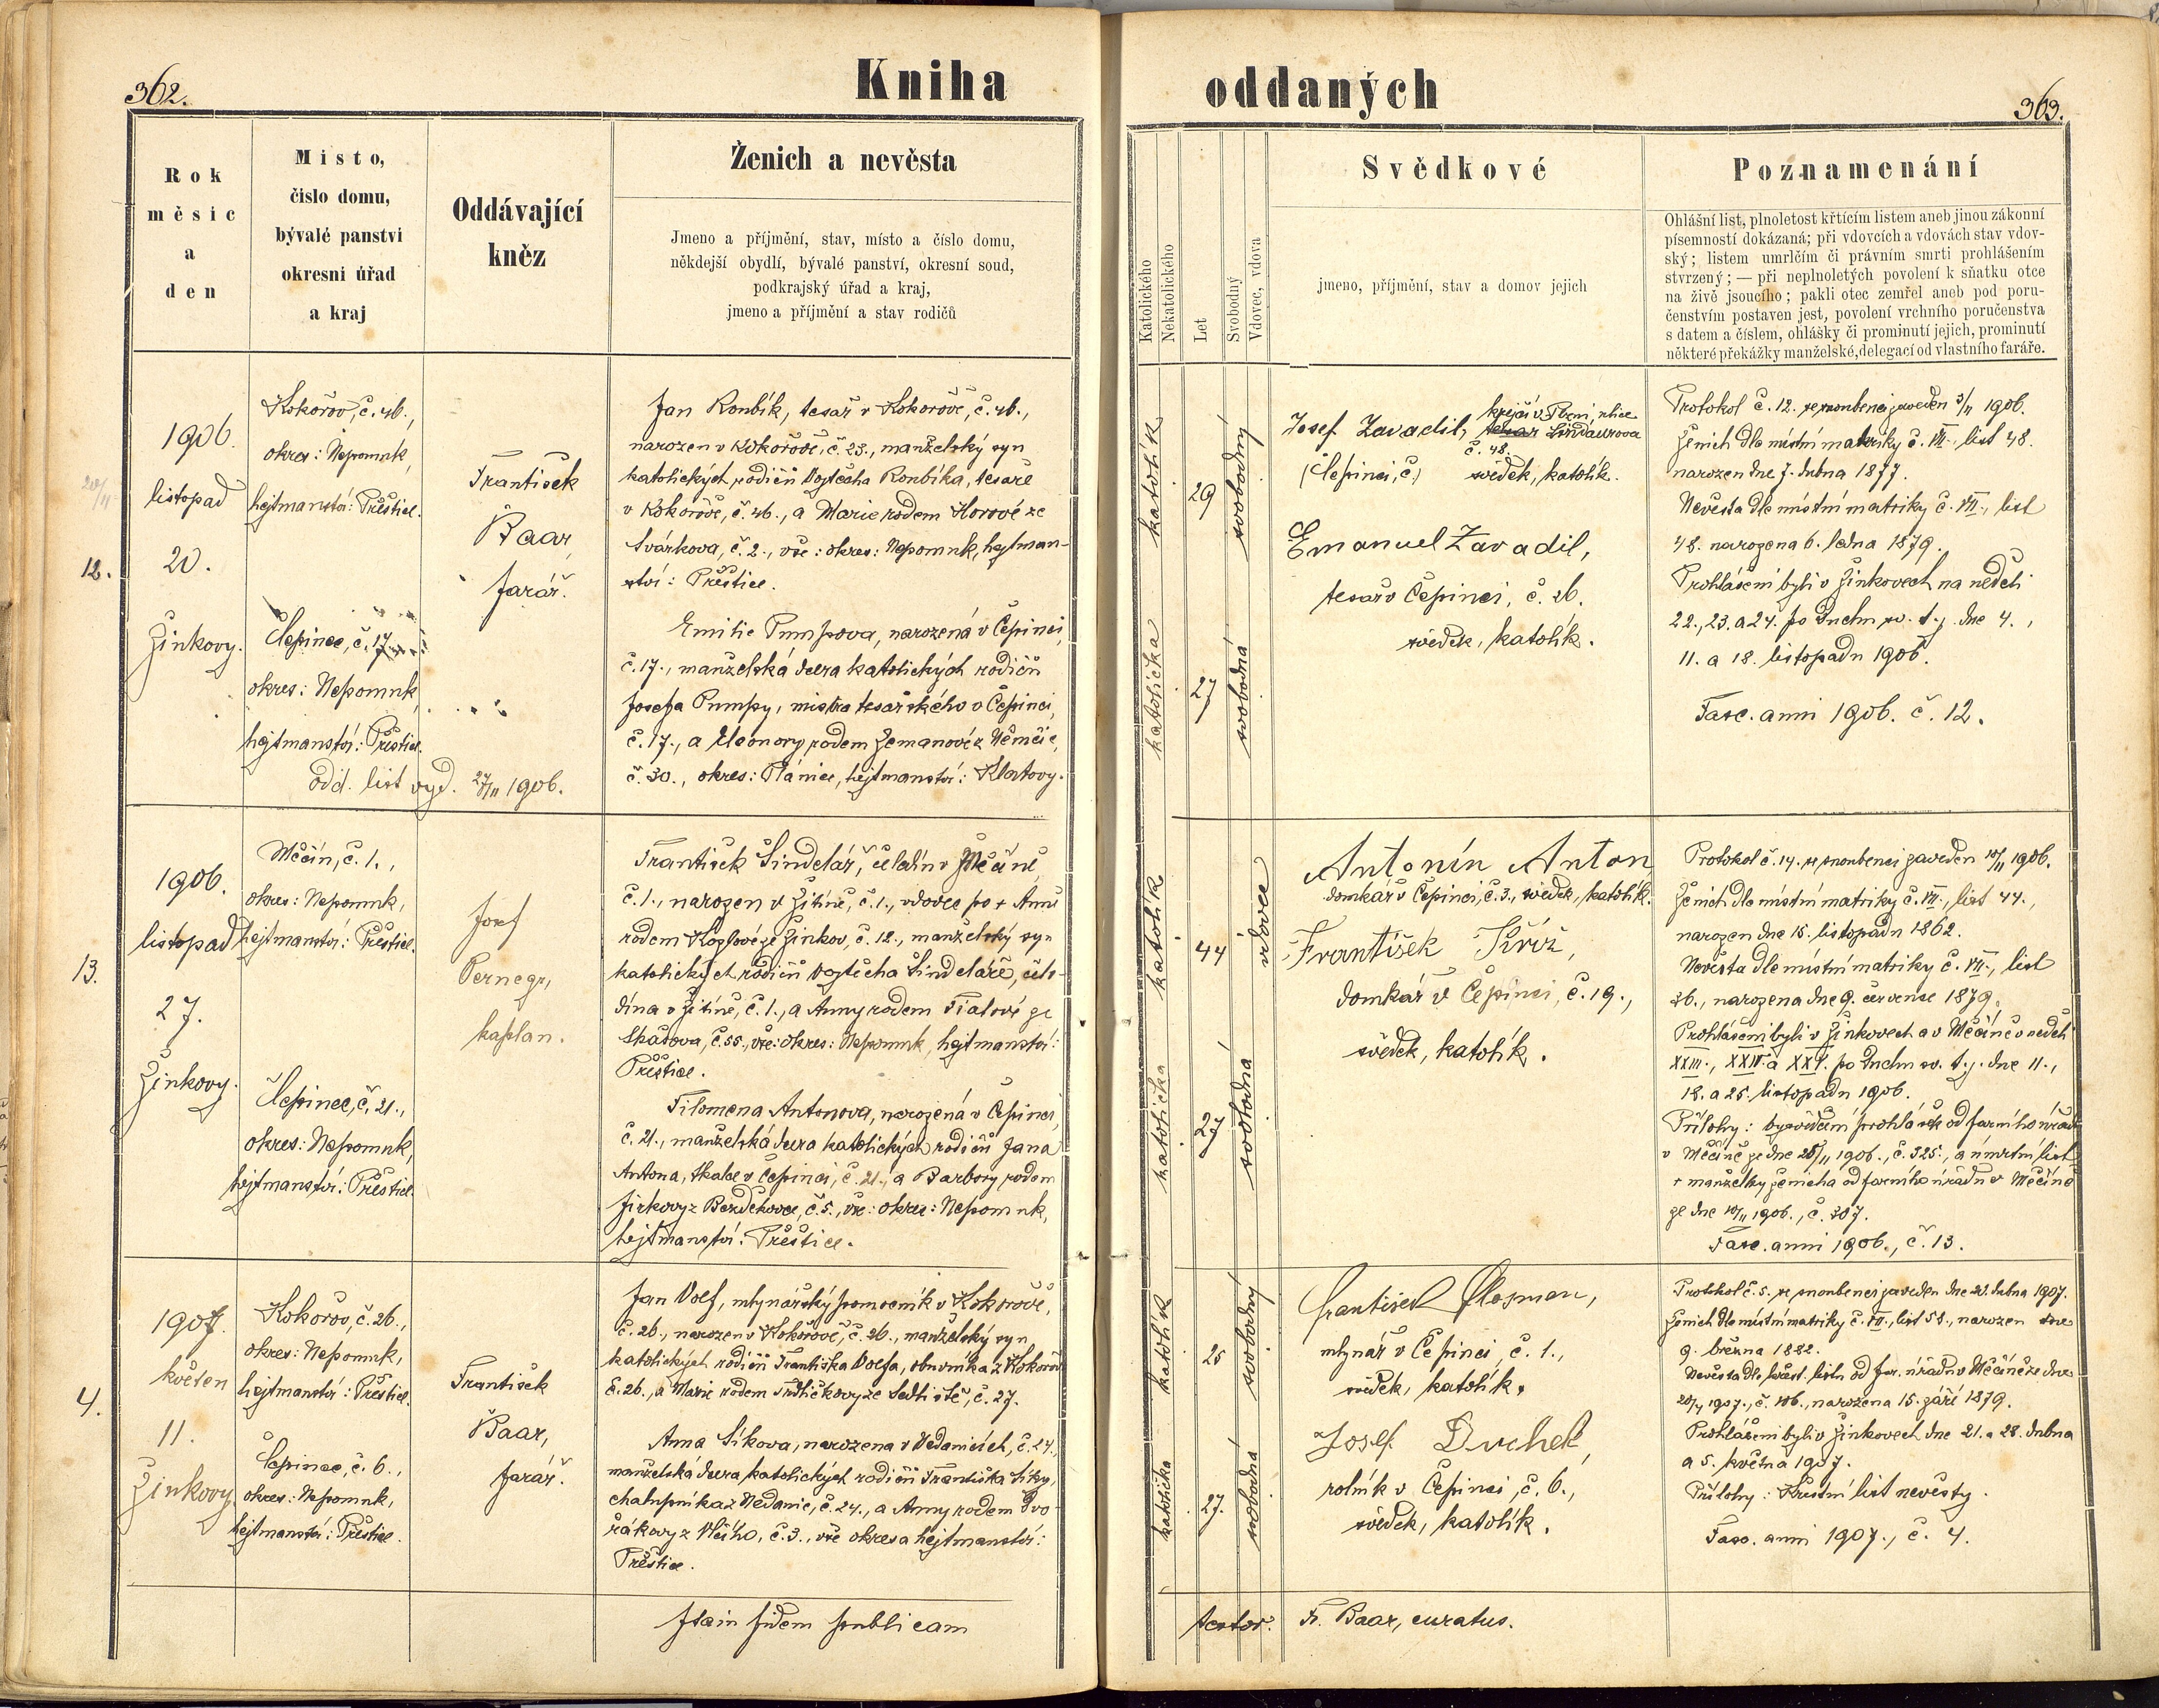 362.
Kniha
Rok
měsíc
a
den
Místo,
číslo domu,
bývalé panství
okresní úřad
a kraj
Oddávající
kněz
Ženich a nevěsta
Jmeno a příjmění, stav, místo a číslo domu,
někdejší obydlí, bývalé panství, okresní soud,
podkrajský úřad a kraj,
jmeno a příjmění a stav rodičů
12.
20/11
1906.
listopad
20.
Žinkovy.
Kokořov, č. 46.,
okres: Nepomuk,
hejtmanství: Přeštice.
Čepinec, č. 17.
okres: Nepomuk,
hejtmanství: Přeštice.
odd. list vyd. 27/11 1906.
František
Baar,
farář.
Jan Ronbík, tesař v Kokořově, č. 46.,
narozen v Kokořově, č. 23., manželský syn
katolických rodičů Vojtěcha Ronbíka, tesaře
v Kokořově, č. 46., a Marie rodem Horové ze
Svárkova, č. 2., vše: okres: Nepomuk, hejtman-
ství: Přeštice.
Emilie Pumpova, narozená v Čepinci,
č. 17., manželská dcera katolických rodičů
Josefa Pumpy, mistra tesařského v Čepinci,
č. 17., a Eleonory rodem Zemanové z Němčic,
č. 30., okres: Plánice, hejtmanství: Klatovy.
13.
1906.
listopad
27.
Žinkovy.
Měčín, č. 1.,
okres: Nepomuk,
hejtmanství: Přeštice.
Čepinec, č. 21.,
okres: Nepomuk,
hejtmanství: Přeštice.
Josef
Pernegr,
kaplan.
František Šindelář, čeledín v Měčíně,
č. 1., narozen v Žitíně, č. 1., vdovec po + Anně
rodem Kozlové ze Žinkov, č. 12., manželský syn
katolických rodičů Vojtěcha Šindeláře, čele-
dína v Žitíně, č. 1., a Anny rodem Fialové ze
Skašova, č. 55., vše: okres: Nepomuk, hejtmanství:
Přeštice.
Filomena Antonova, narozená v Čepinci,
č. 21., manželská dcera katolických rodičů Jana
Antona, tkalce v Čepinci, č. 21., a Barbory rodem
Jirkovy z Bezděkovce, č. 5., vše: okres: Nepomuk,
hejtmanství: Přeštice.
4.
1907.
květen
11.
Žinkovy
Kokořov, č. 26.,
okres: Nepomuk,
hejtmanství: Přeštice.
Čepinec, č. 6.,
okres: Nepomuk,
hejtmanství: Přeštice.
František
Baar,
farář.
Jan Volf, mlynářský pomocník v Kokořově,
č. 26., narozen v Kokořově, č. 26., manželský syn
katolických rodičů Františka Volfa, obuvníka z Kokořova
č. 26., a Marie rodem Trdličkovy ze Sedliště, č. 27.
Anna Síkova, narozena v Nedanicích, č. 24.,
manželská dcera katolických rodičů Františka Síky,
chalupníka z Nedanic, č. 24., a Anny rodem Dvo-
řákovy z Vlčího, č. 3., vše okres a hejtmanství:
Přeštice.
In fidem publicam
oddaných
363.
Katolického
Nekatolického
Let
Svobodný
Vdovec, vdova
Svědkové
jmeno, příjmění, stav a domov jejich
Poznamenání
Ohlášní list, plnoletost křtícím listem aneb jinou zákonní
písemností dokázaná; při vdovcích a vdovách stav vdov-
ský; listem umrlčím či právním smrti prohlášením
stvrzený; — při neplnoletých povolení k sňatku otce
na živě jsoucího; pakli otec zemřel aneb pod poru-
čenstvím postaven jest, povolení vrchního poručenstva
s datem a číslem, ohlášky či prominutí jejich, prominutí
některé překážky manželské, delegací od vlastního faráře.
katolík
29
svobodný
katolička
27
svobodná
Josef Zavadil, krejčí v Plzni, ulice
tesař Lindaurova
č. 48.
(Čepinci, č.) svědek, katolík.
Emanuel Zavadil,
tesař v Čepinci, č. 26.
svědek, katolík.
Protokol č. 12. se snoubenci zaveden 3/11 1906.
Ženich dle místní matriky č. VII., list 48.
narozen dne 7. dubna 1877.
Nevěsta dle místní matriky č. VII., list
48. narozena 6. ledna 1879.
Prohlášeni byli v Žinkovech na neděli
22., 23. a 24. po Duchu sv. t. j. dne 4.,
11. a 18. listopadu 1906.
Fasc. anni 1906. č. 12.
katolík
44
vdovec
katolička
27
svobodná
Antonín Anton
domkář v Čepinci, č. 3., svědek, katolík.
František Kříž,
domkář v Čepinci, č. 19.,
svědek, katolík.
Protokol č. 14. se snoubenci zaveden 10/11 1906.
Ženich dle místní matriky č. VI., list 44.,
narozen dne 15. listopadu 1862.
Nevěsta dle místní matriky č. VII., list
36., narozena dne 9. července 1879.
Prohlášeni byli v Žinkovech a v Měčíně v neděli
XXIII., XXIV. a XXV. po Duchu sv. t. j. dne 11.,
18. a 25. listopadu 1906.
Přílohy: vysvědčení prohlášek od farního úřadu
v Měčíně ze dne 25/11 1906., č. 325., a úmrtní list
+ manželky ženicha od farního úřadu v Měčíně
ze dne 10/11 1906., č. 307.
Fasc. anni 1906., č. 13.
katolík
25
svobodný
katolička
27.
svobodná
František Klasman,
mlynář v Čepinci, č. 1.,
svědek, katolík.
Josef Duchek,
rolník v Čepinci, č. 6.,
svědek, katolík.
Protokol č. 5. se snoubenci zaveden dne 20. dubna 1907.
Ženich dle místní matriky č. VII., list 58., narozen dne
9. března 1882.
Nevěsta dle křest. listu od far. úřadu v Měčíně ze dne
20/4 1907., č. 106., narozena 15. září 1879.
Prohlášeni byli v Žinkovech dne 21. a 28. dubna
a 5. května 1907.
Přílohy: Křestní list nevěsty.
Fasc. anni 1907., č. 4.
testor. Fr. Baar, curatus.